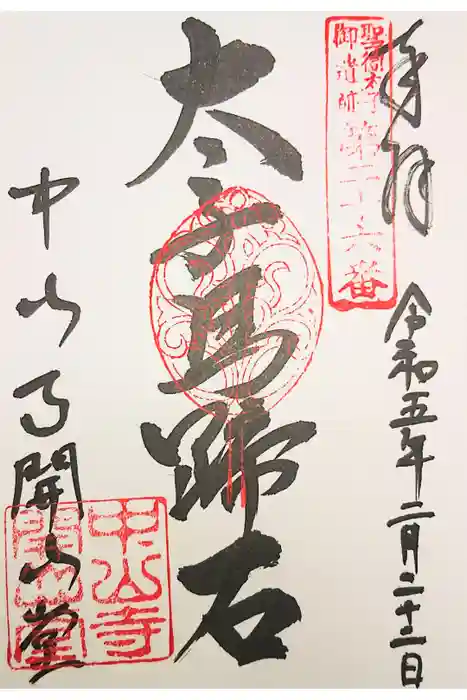 奉拝
聖徳太子
御遺跡第二十六番
令和五年二月二十二日
太子馬蹄石
中山寺開山堂
中山寺
開山堂